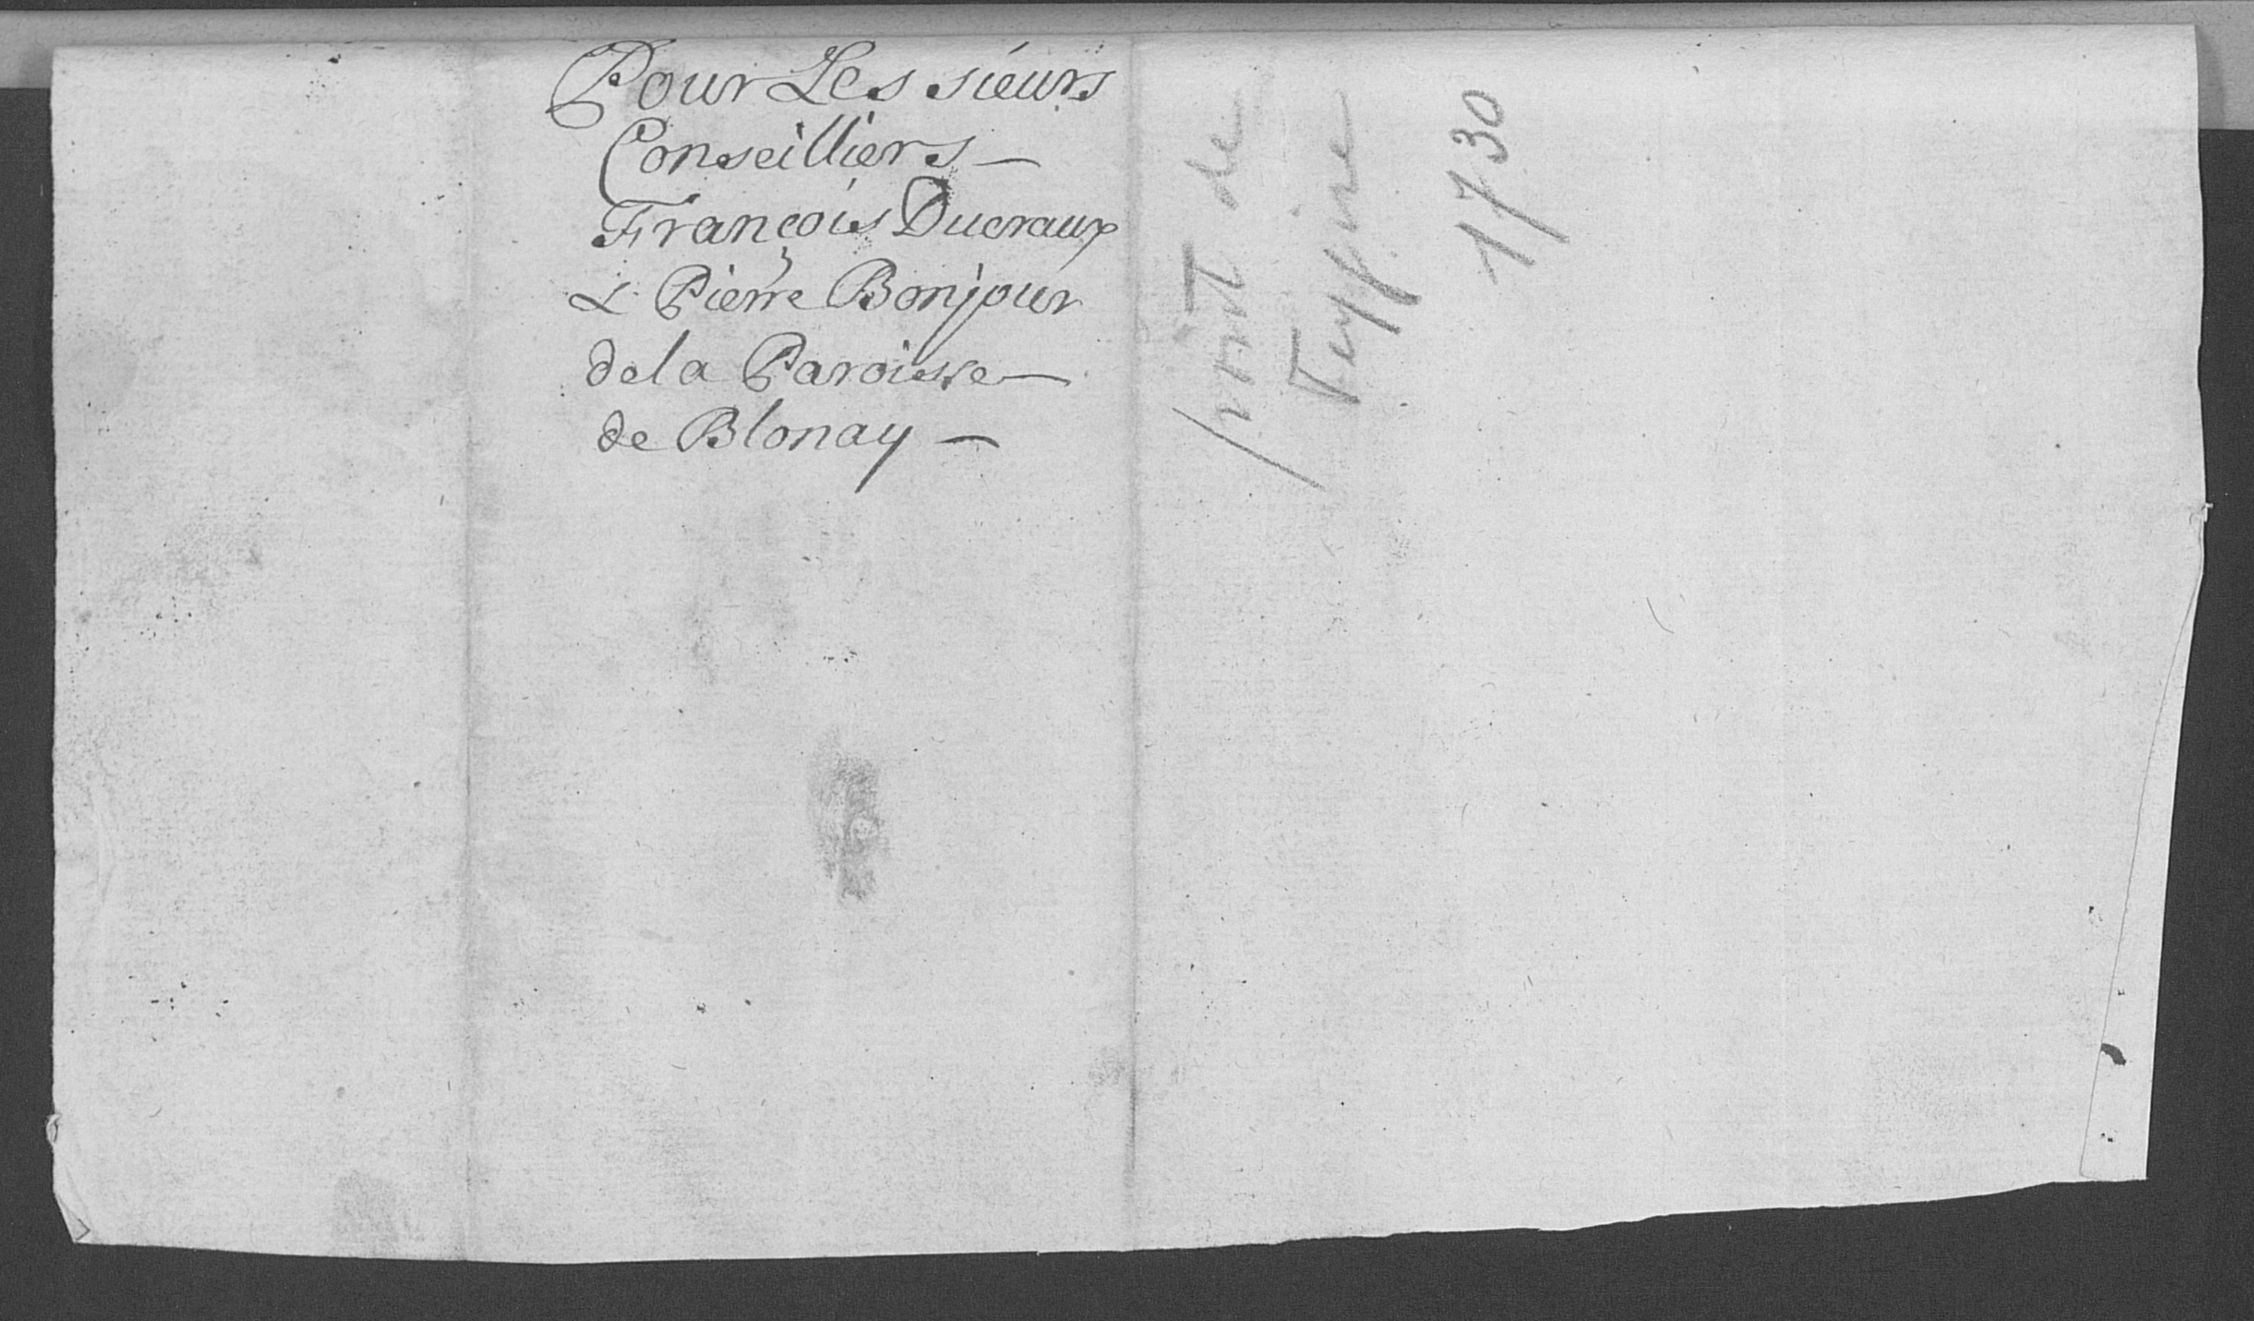 Pour Les sieurs
Conseilliers —
François Ducraux
& Pierre Bonjour
de la Paroisse —
de Blonay —
pont de
Feygire
1730